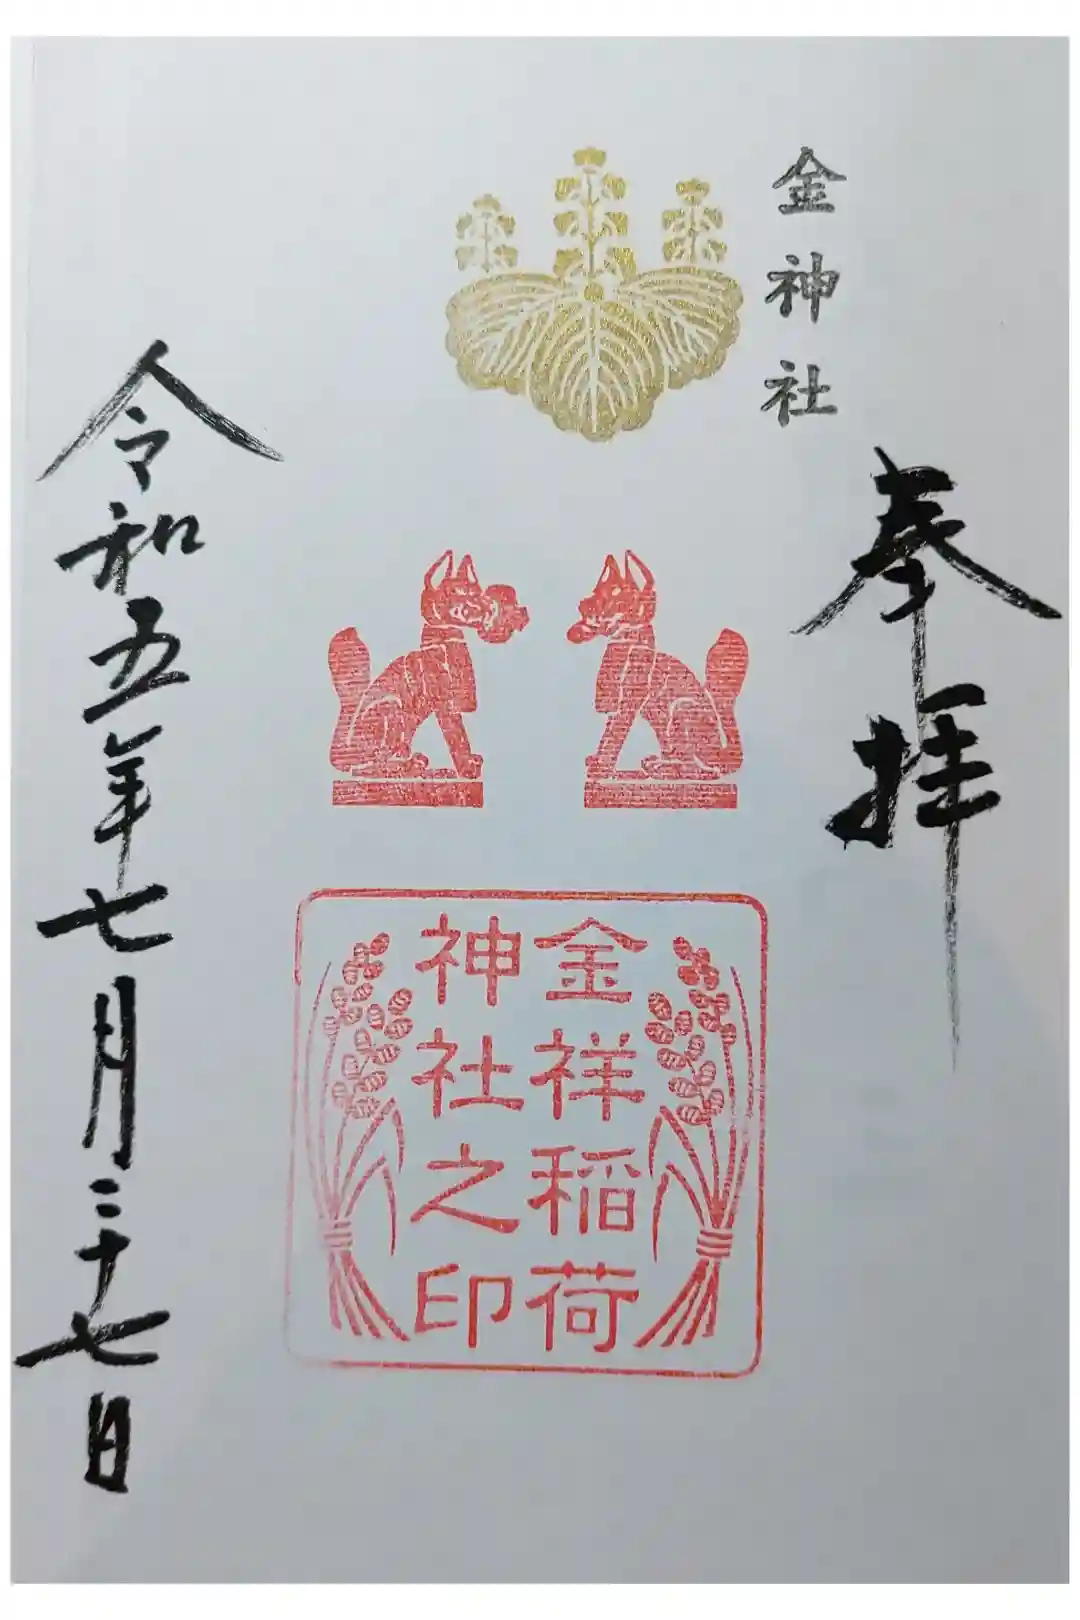 金神社
奉拝
金祥稲荷
神社之印
令和五年七月二十七日